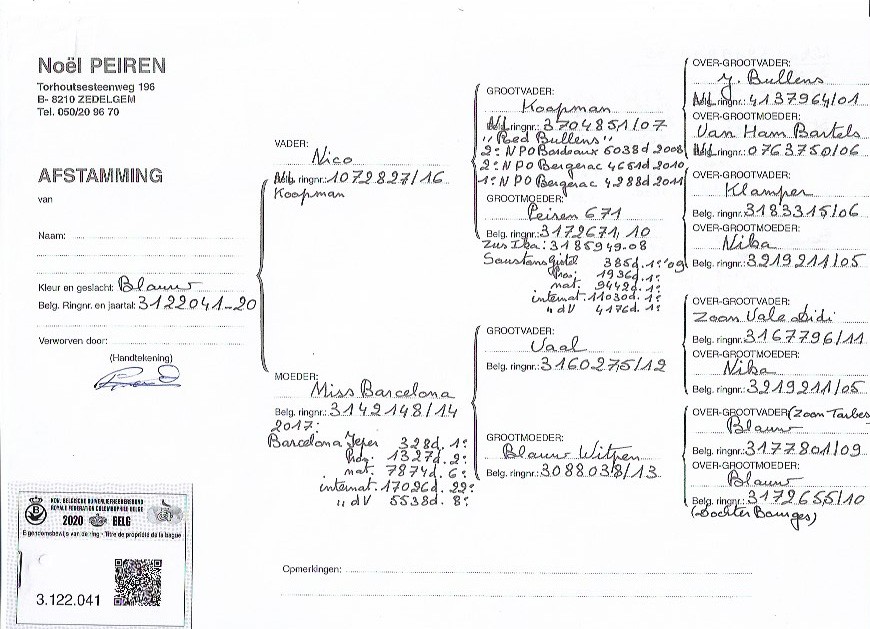 Noël PEIREN
Torhoutsesteenweg 196
B- 8210 ZEDELGEM
Tel. 050/20 96 70
AFSTAMMING
van
Naam:
Kleur en geslacht: Blauw
Belg. Ringnr. en jaartal: 3122041-20
Verworven door:
(Handtekening)
VADER:
Nico
Nl. ringnr.: 1072827/16
Koopman
MOEDER:
Miss Barcelona
Belg. ringnr.: 3142148/14
2017:
Barcelona Ieper 328d. 1e
Prov. 1327d. 2e
nat. 7874d. 6e
internat. 17026d. 22e
" dV 5538d. 8e
GROOTVADER:
Koopman
Nl. ringnr.: 3704851/07
"Red Bullens"
2e NPO Bordeaux 6038d 2008
2e NPO Bergerac 4651d 2010
1e NPO Bergerac 4288d 2011
GROOTMOEDER:
Peiren 671
Belg. ringnr.: 3172671, 10
Zus Ika: 3185949-08
Soustons Gistel 385d. 1e '09
Prov. 1936d. 1e
nat. 9442d. 1e
internat. 11030d. 1e
" dV 4176d. 1e
GROOTVADER:
Vaal
Belg. ringnr.: 3160275/12
GROOTMOEDER:
Blauw Witpen
Belg. ringnr.: 3088038/13
OVER-GROOTVADER:
J. Bullens
Nl. ringnr.: 4137964/01
OVER-GROOTMOEDER:
Van Ham Bartels
Nl. ringnr.: 0763750/06
OVER-GROOTVADER:
Klamper
Belg. ringnr.: 3183315/06
OVER-GROOTMOEDER:
Nika
Belg. ringnr.: 3219211/05
OVER-GROOTVADER:
Zoon Vale Didi
Belg. ringnr.: 3167796/11
OVER-GROOTMOEDER:
Nika
Belg. ringnr.: 3219211/05
OVER-GROOTVADER: (Zoon Tarbes
Blauw
Belg. ringnr.: 3177801/09
OVER-GROOTMOEDER:
Blauw
Belg. ringnr.: 3172655/10
(Dochter Bourges)
Opmerkingen:
KON. BELGISCHE DUIVENLIEFHEBBERSBOND
ROYALE FEDERATION COLOMBOPHILE BELGE
2020 BELG
Eigendomsbewijs van de ring - Titre de propriété de la bague
3.122.041